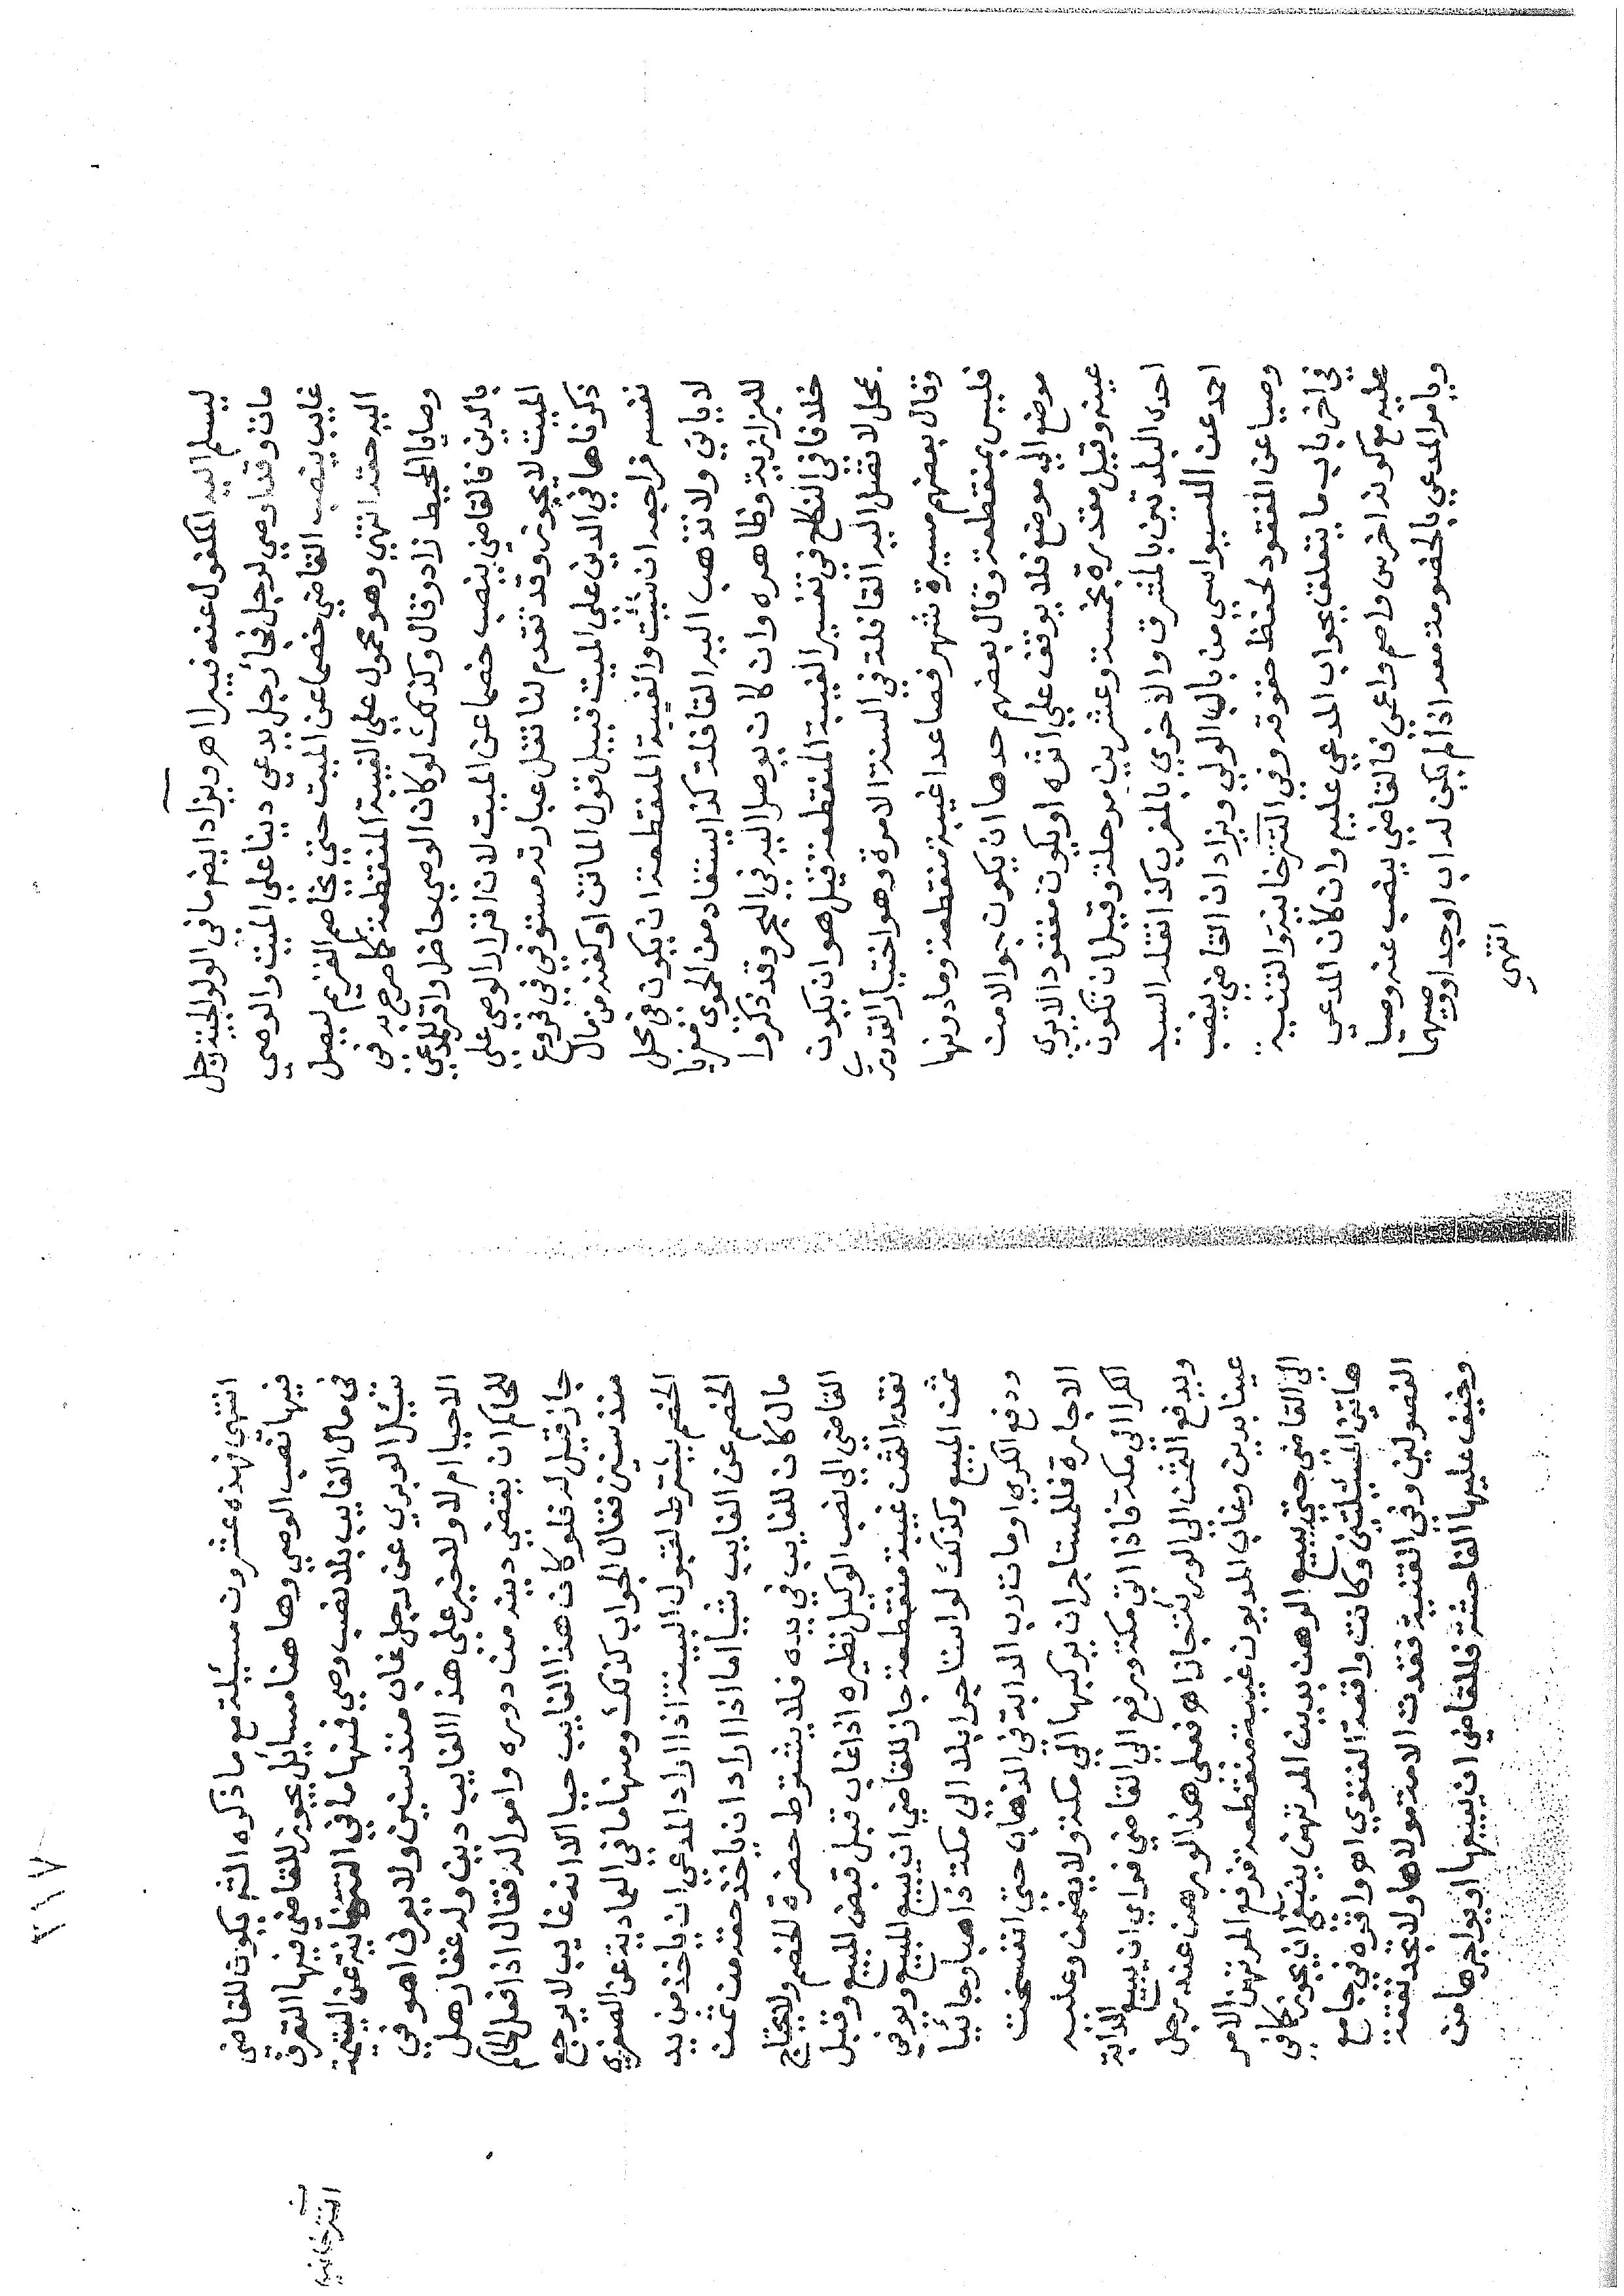 ليسلم اليه المكفول عنه فيبرا اهر ويزاد ايضا ما في الولوالجية رجل
مات وقد اوصي لرجل فجا رجل يدعي دينا علي الميت والوصي
غايب ينصب القاضي خصما عن الميت حتي يخاصم الغريم ليصل
اليه حقه انتهي وهو محمول علي الغيبة المنقطعة كما صرح به في
وصايا المحيط زاد وقال وكذلك لو كان الوصي حاضر واقر للمدعي
بالدين فالقاضي ينصب خصما عن الميت لان اقرار الوصي علي
الميت لا يجوز وقد تقدم لنا نقل عبارته مستوفي في فروع
ذكرناها في الدين علي الميت قبيل قول الماتن او كفنه من مال
نفسه فراجعه ان شئت والغيبة المنقطعة ان يكون في محل
لا ياتي ولا تذهب اليه القافلة كذا يستفاد من الحموي معزيا
للبزازية وظاهره وان كان يوصل اليه في البحر وقد ذكروا
خلافا في النكاح في تفسير الغيبة المنقطعة قيل هو ان يكون
بمحل لا تصل اليه القافلة في السنة الا مرة وهو اختيار القدوري
وقال بعضهم مسيرة شهر فصاعدا غيبة منقطعة وما دونها
فليس بمنقطعة وقال بعضهم حدها ان يكون جوالا من
موضع الي موضع فلا يوقف علي اثره او يكون مفقودا لا يدري
عينه وقيل مقدرة بخمسة وعشرين مرحلة وقيل ان تكون
احدي البلدتين بالمشرق والاخري بالمغرب كذا نقله السيد
احمد عن السيواسي من باب الولي ويزاد ان القاضي ينصب
وصيا عن المفقود لحفظ حقوقه وفي التترخانية والقنية
في اخر باب ما يتعلق بجواب المدعي عليه وان كان المدعي
عليه مع كونه اخرس واصم واعمي فالقاضي ينصب عنه وصيا
ويامر المدعي بالخصومة معه اذا لم يكن له اب او جد او وصيهما
انتهي
٣١٧
انتهي فهذه عشرون مسيلة مع ما ذكره الشر يكون للقاضي
فيها نصب الوصي وها هنا مسايل يجوز للقاضي فيها التصرف
في مال الغايب بلا نصب وصي فمنها ما في التترخانية عن اليتيمة
سئل الوبري عن رجل غاب منذ سنين ولا يعرف اهو في
الاحيا ام لا ولا خبر علي هذا الغايب دين وله عقار هل
للحاكم ان يقضي دينه من دوره وامواله فقال اذا فعل الحاكم
جاز قيل له فلو كان هذا الغايب حيا الا انه غايب لا يرجع
منذ سنين فقال الجواب كذلك ومنها ما في العمادية عن الصغري
الخصم يشترط لقبول البينة اذا اراد المدعي ان ياخذ من يد
الخصم عن الغايب شيا اما اذا اراد ان ياخذ حقه من ثمن
مال كان للغايب في يده فلا يشترط حضرة الخصم ولا يحتاج
القاضي الي نصب الوكيل نظيره اذا غاب قبل قبض المبيع وقبل
نقد الثمن غيبة منقطعة جاز للقاضي ان يبيع المبيع ويوفي
ثمن المبيع وكذلك لو استاجر ابلا الي مكة ذاهبا وجائيا
ودفع الكري ومات رب الدابة في الذهاب حتي انفسخت
الاجارة فللمستاجر ان يركبها الي مكة ولا يضمن وعليه
الكرا الي مكة فاذا اتي مكة ورفع الي القاضي فراي ان يبيع الدابة
ويدفع الثمن الي الورثة جاز اهر فعلي هذا لو رهن عند رجل
عينا بدين وغاب المديون غيبة منقطعة فرفع المرتهن الامر
الي القاضي حتي يبيع الرهن بدين المرتهن ينبغي ان يجوز كما في
هاتين المسئلتين وكانت واقعة الفتوي اهر واقره في جامع
الفصولين وفي القنية فقدت الامة مولاها ولا تجد نفقة
وخيف عليها الفاحشة فللقاضي ان يبيعها او يواجرها من
التترخانية